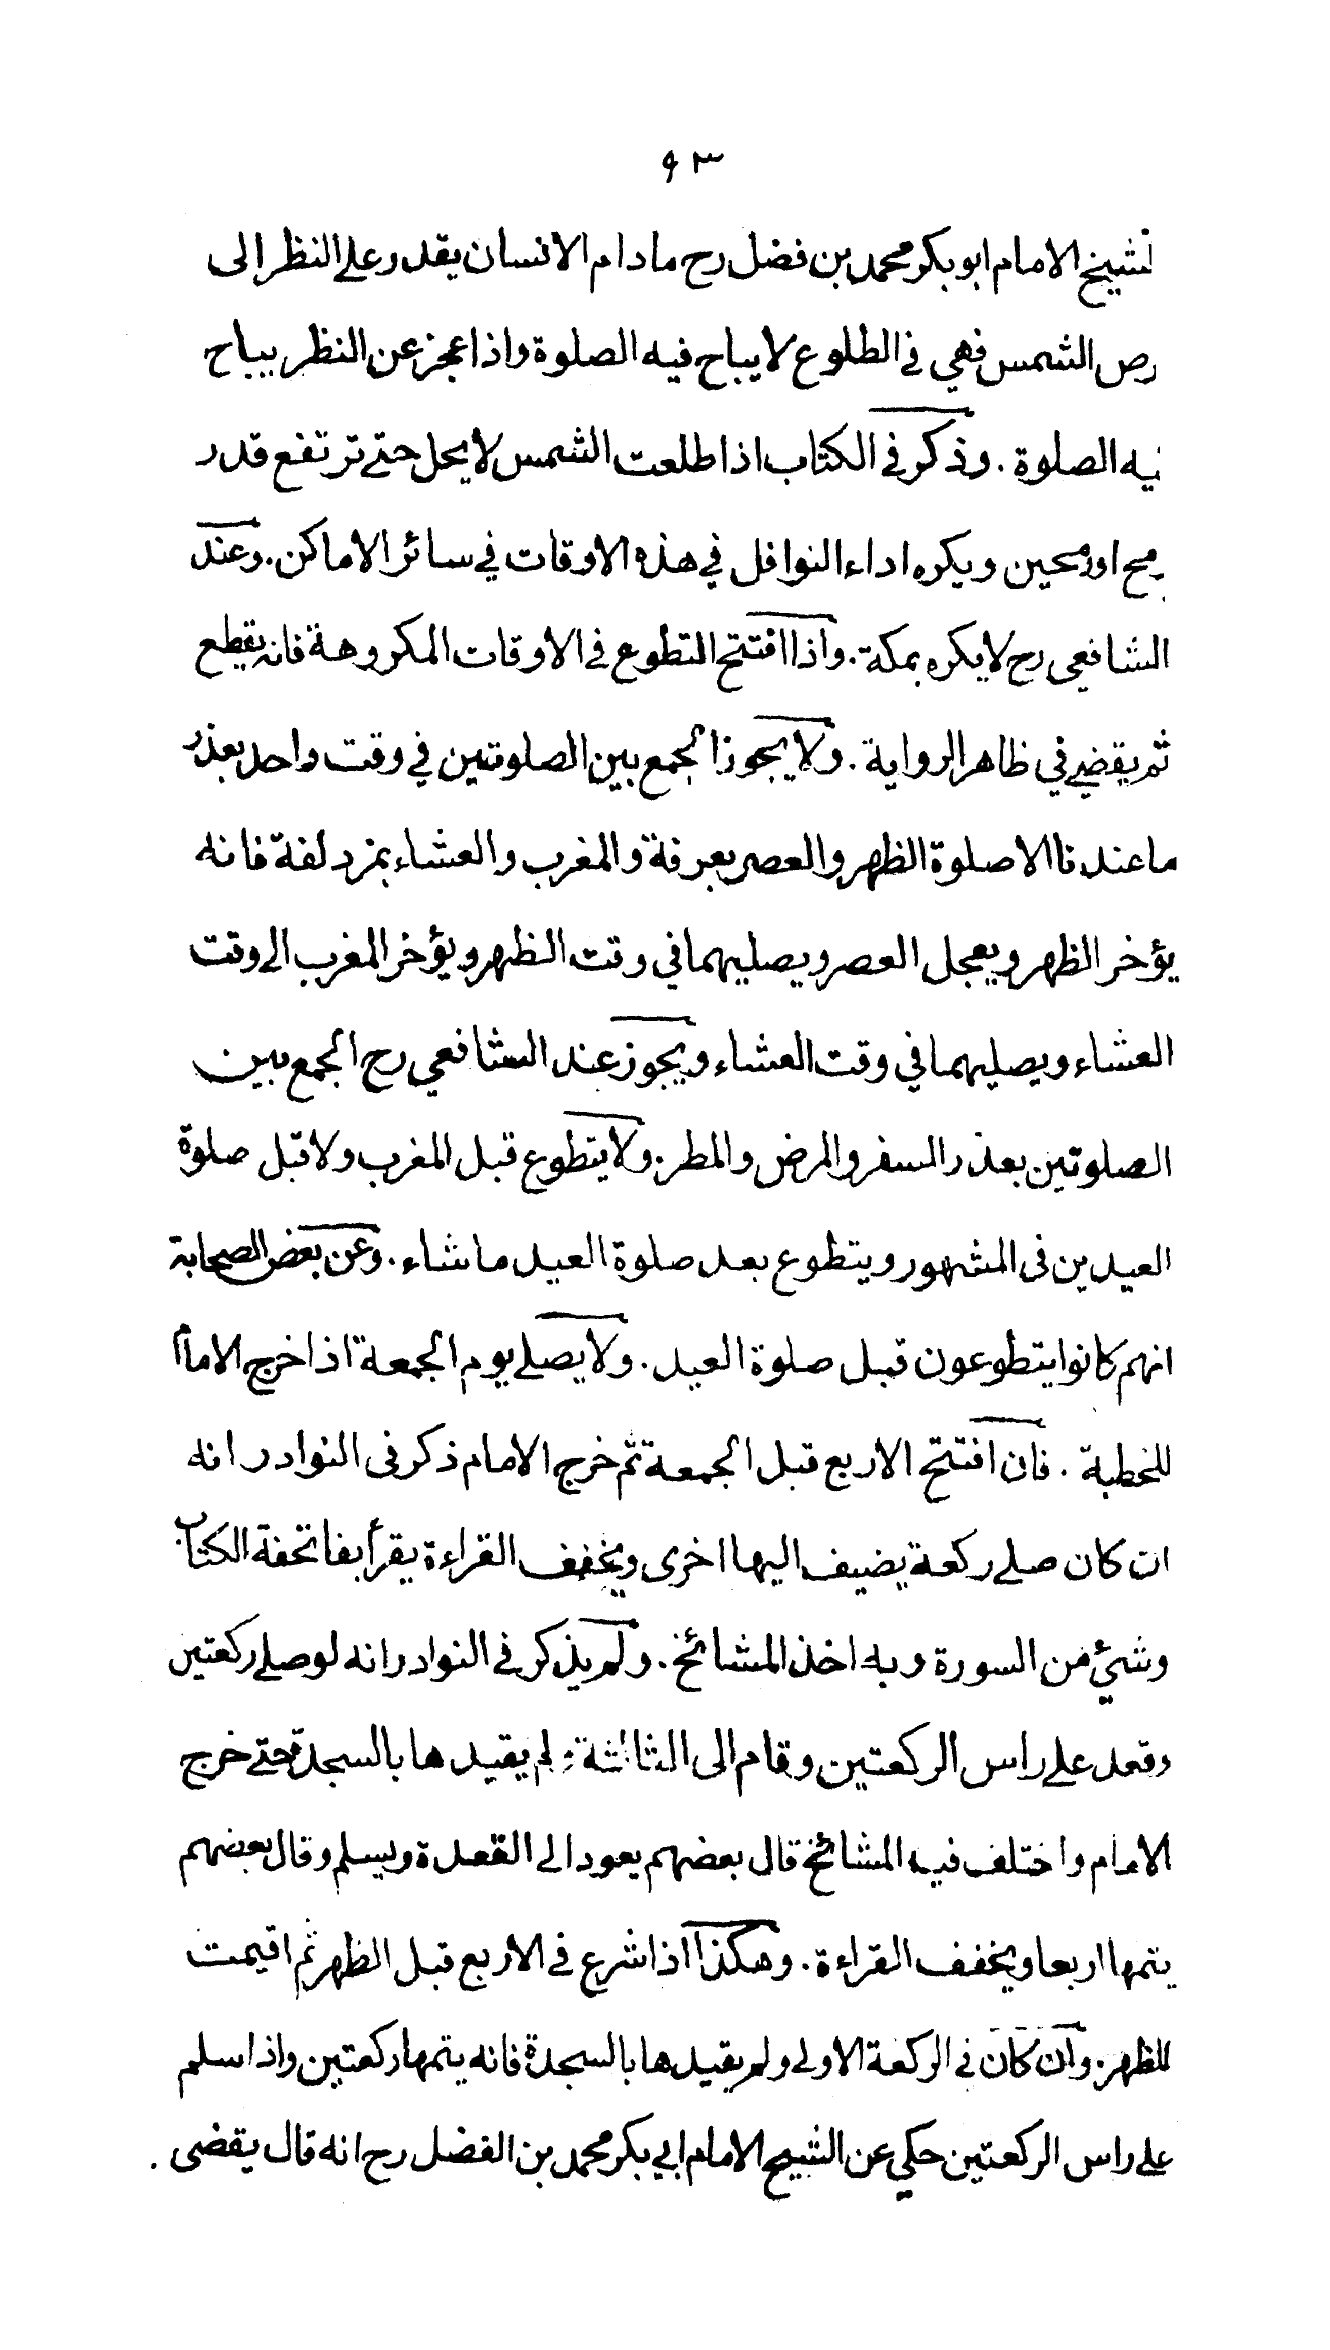 ٩٣
الشيخ الامام ابو بكر محمد بن فضل رح ما دام الانسان يقدر على النظر الى
رص الشمس فهي في الطلوع لا يباح فيه الصلوة واذا عجز عن النظر يباح
فيه الصلوة . وذكر في الكتاب اذا طلعت الشمس لا يحل حتى ترتفع قدر
رمح او رمحين ويكره اداء النوافل في هذه الاوقات في سائر الاماكن . وعند
الشافعي رح لا يكره بمكة . واذا افتتح التطوع في الاوقات المكروهة فانه يقطع
ثم يقضي في ظاهر الرواية . ولا يجوز الجمع بين الصلوتين في وقت واحد بعذر
ما عندنا الا صلوة الظهر والعصر بعرفة والمغرب والعشاء بمزدلفة فانه
يؤخر الظهر ويعجل العصر ويصليهما في وقت الظهر ويؤخر المغرب الى وقت
العشاء ويصليهما في وقت العشاء ويجوز عند الشافعي رح الجمع بين
الصلوتين بعذر السفر والمرض والمطر . ولا يتطوع قبل المغرب ولا قبل صلوة
العيدين في المشهور ويتطوع بعد صلوة العيد ما شاء . وعن بعض الصحابة
انهم كانوا يتطوعون قبل صلوة العيد . ولا يصلى يوم الجمعة اذا خرج الامام
للخطبة . فان افتتح الاربع قبل الجمعة ثم خرج الامام ذكر في النوادر انه
ان كان صلى ركعة يضيف اليها اخرى ويخفف القراءة يقرأ بفاتحة الكتاب
وشيء من السورة وبه اخذ المشائخ . ولم يذكر في النوادر انه لو صلى ركعتين
وقعد على راس الركعتين وقام الى الثالثة ولم يقيدها بالسجدة حتى خرج
الامام واختلف فيه المشائخ قال بعضهم يعود الى القعدة ويسلم وقال بعضهم
يتمها اربعا ويخفف القراءة . وهكذا اذا شرع في الاربع قبل الظهر ثم اقيمت
للظهر . وان كان في الركعة الاولى ولم يقيدها بالسجدة فانه يتمها ركعتين واذا سلم
على راس الركعتين حكي عن الشيخ الامام ابي بكر محمد بن الفضل رح انه قال يقضى .